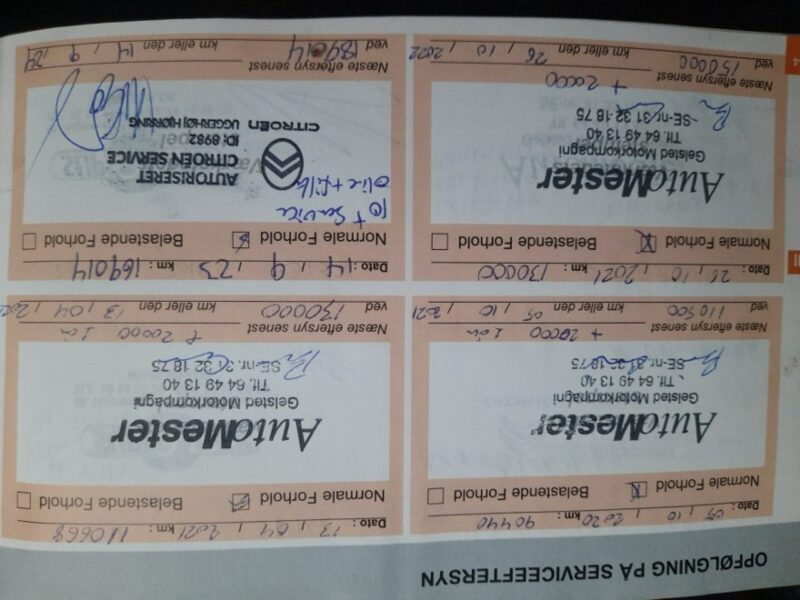 OPFØLGNING PÅ SERVICEEFTERSYN
Dato : 05 / 10 / 2020 km : 90440
Normale Forhold Belastende Forhold
AutoMester
Gelsted Motorkompagni
Tlf. 64 49 13 40
SE-nr. 31 32 18 75
Næste eftersyn senest + 20000 1 år
ved 110500 km eller den 05 / 10 / 2021
Dato : 13 / 04 / 2021 km : 110668
Normale Forhold Belastende Forhold
AutoMester
Gelsted Motorkompagni
Tlf. 64 49 13 40
SE-nr. 31 32 18 75
Næste eftersyn senest + 20000 1 år
ved 130000 km eller den 13 / 04 /
Dato : 26 / 10 / 2021 km : 130000
Normale Forhold Belastende Forhold
AutoMester
Gelsted Motorkompagni
Tlf. 64 49 13 40
SE-nr. 31 32 18 75
+ 20000
Næste eftersyn senest
ved 150000 km eller den 26 / 10 / 2022
Dato : 14 / 9 / 23 km : 169014
Normale Forhold Belastende Forhold
+ Service
olie + filter
AUTORISERET
CITROËN SERVICE
ID: 8982
CITROËN UGGERHØJ HJØRRING
Næste eftersyn senest
ved 189014 km eller den 14 / 9 / 24